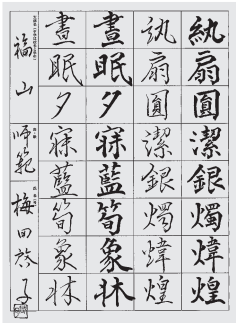 紈扇圓潔銀燭煒煌
紈扇圓潔銀燭煒煌
晝眠夕寐藍筍象牀
晝眠夕寐藍筍象牀
福山
師範
梅田